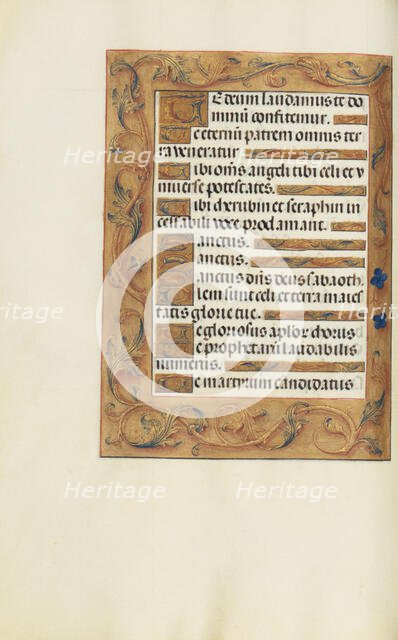 Te deum laudamus te do
minū confitemur.
Te eternū patrem omnis ter
ra veneratur
Tibi om̄s angeli tibi celi et v
niuerse potestates.
Tibi cherubin et seraphin in
cessabili voce proclamant.
Sanctus.
Sanctus.
Sanctus dn̄s deus sabaoth
Pleni sunt celi et terra maies
tatis glorie tue.
Te gloriosus ap̄lor̄ chorus
Te prophetarū laudabilis
numerus.
Te martyrum candidatus
Heritage
Heritage
Heritage
Heritage
Heritage
Heritage
Heritage